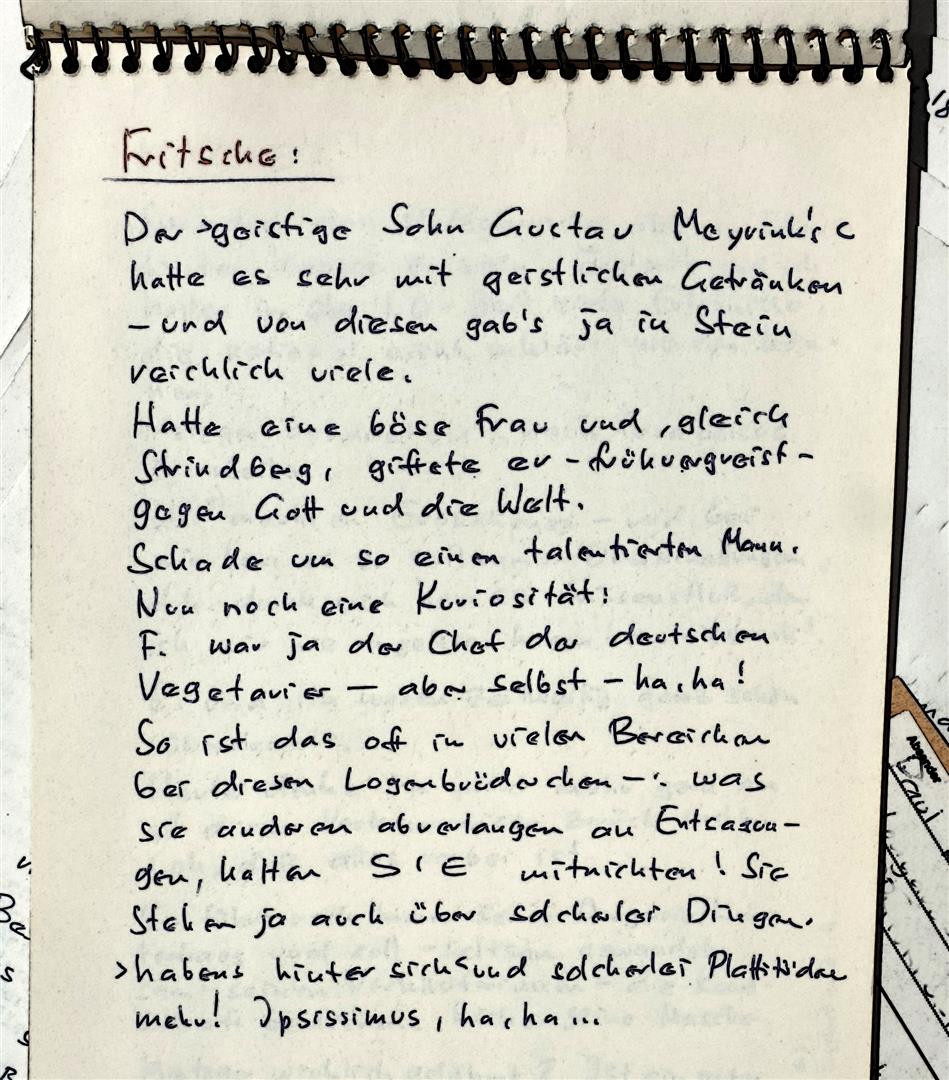 Fritsche:
Der >geistige Sohn Gustav Meyrink's<
hatte es sehr mit geistlichen Getränken
– und von diesen gab's ja in Stein
reichlich viele.
Hatte eine böse Frau und, gleich
Strindberg, giftete er – frühvergreist –
gegen Gott und die Welt.
Schade um so einen talentierten Mann.
Nun noch eine Kuriosität:
F. war ja der Chef der deutschen
Vegetarier – aber selbst – ha, ha!
So ist das oft in vielen Bereichen
bei diesen Logenbrüderchen – : was
sie anderen abverlangen an Entsagun-
gen, halten SIE mitnichten! Sie
stehen ja auch über solcherlei Dingen.
>habens hinter sich< und solcherlei Plattitüden
mehr! Ipsissimus, ha, ha...
Absender